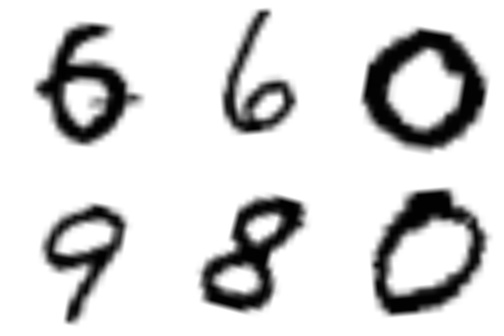 6 6 0
9 8 0